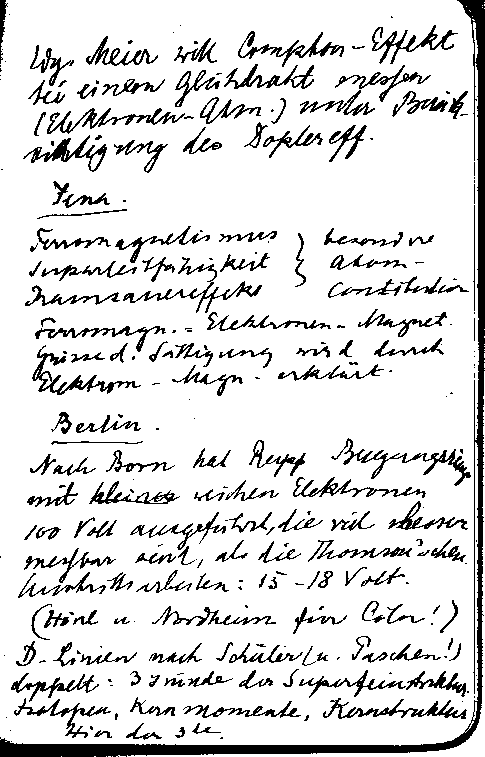 Wg. Meier will Compton-Effekt
bei einem Glühdraht messen
(Elektronen-Atm.) unter Berück-
sichtigung des Dopplereff.
Jena.
Ferromagnetismus } besondre
Supraleitfähigkeit } Atom-
Ramsauereffekt Constitution
Ferromagn. = Elektronen-Magnet.
Grösse d. Sättigung wird durch
Elektron-Magn. erklärt.
Berlin.
Nach Born hat Rupp Beugungsringe
mit kleinen weichen Elektronen
100 Volt ausgeführt, die viel besser
messbar sind, als die Thomson'schen
Austrittsarbeiten: 15-18 Volt.
(Hörl u. Nordheim für Color!)
D-Linien nach Schüler (u. Paschen!)
doppelt: 3 Gründe der Superfeinstruktur
Isotopen, Kernmomente, Kernstruktur
Hier der 3te.